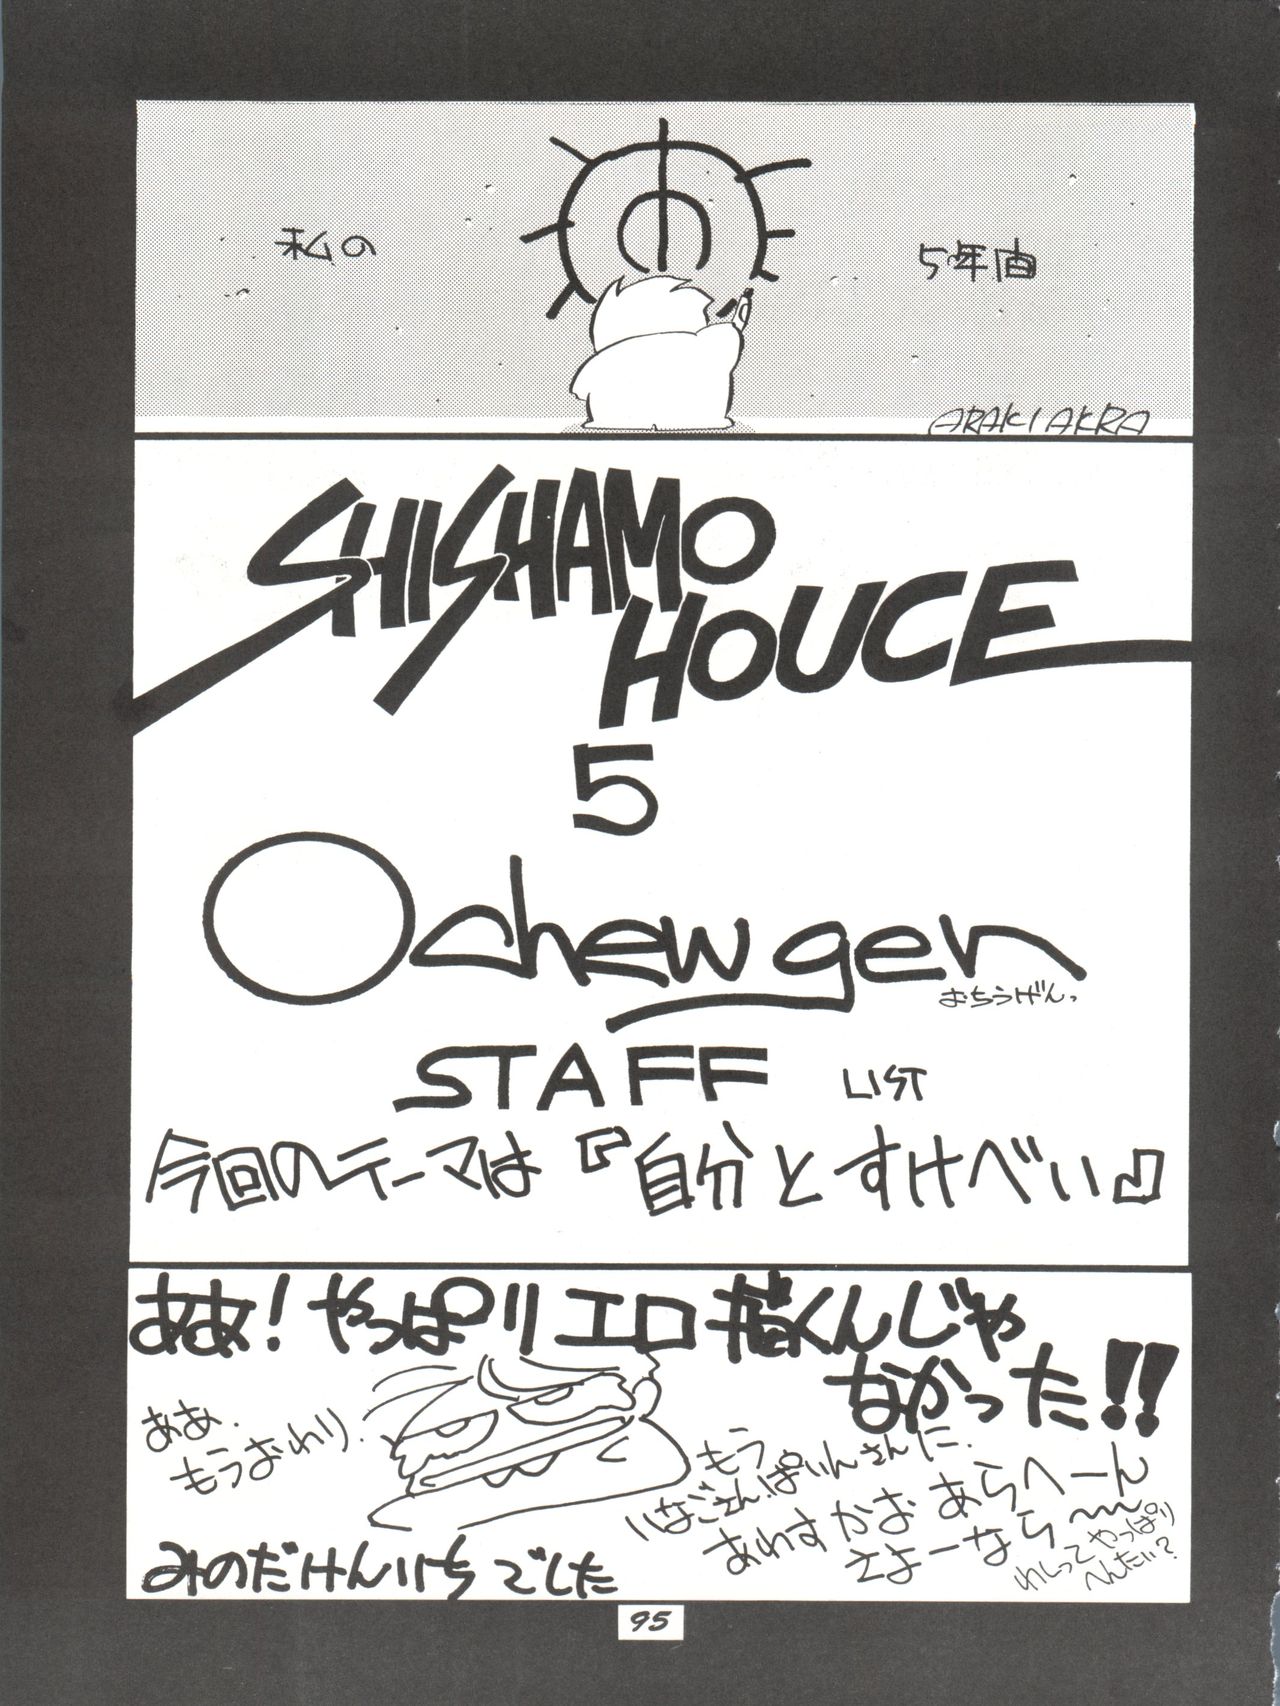 私の
5年間
ARAKI AKRA
SHISHAMO
HOUCE
5
Ochewgen
おちうげんっ
STAFF LIST
今回のテーマは『自分とすけべい』
ああ!やっぱりエロ描くんじゃ
なかった!!
ああ、
もうおわり、
もう
いなごさん、ぱいんさんに、
あわすかお あらへーん
さよーなら〜
わしってやっぱり
へんたい?
みのだけんいちでした
95